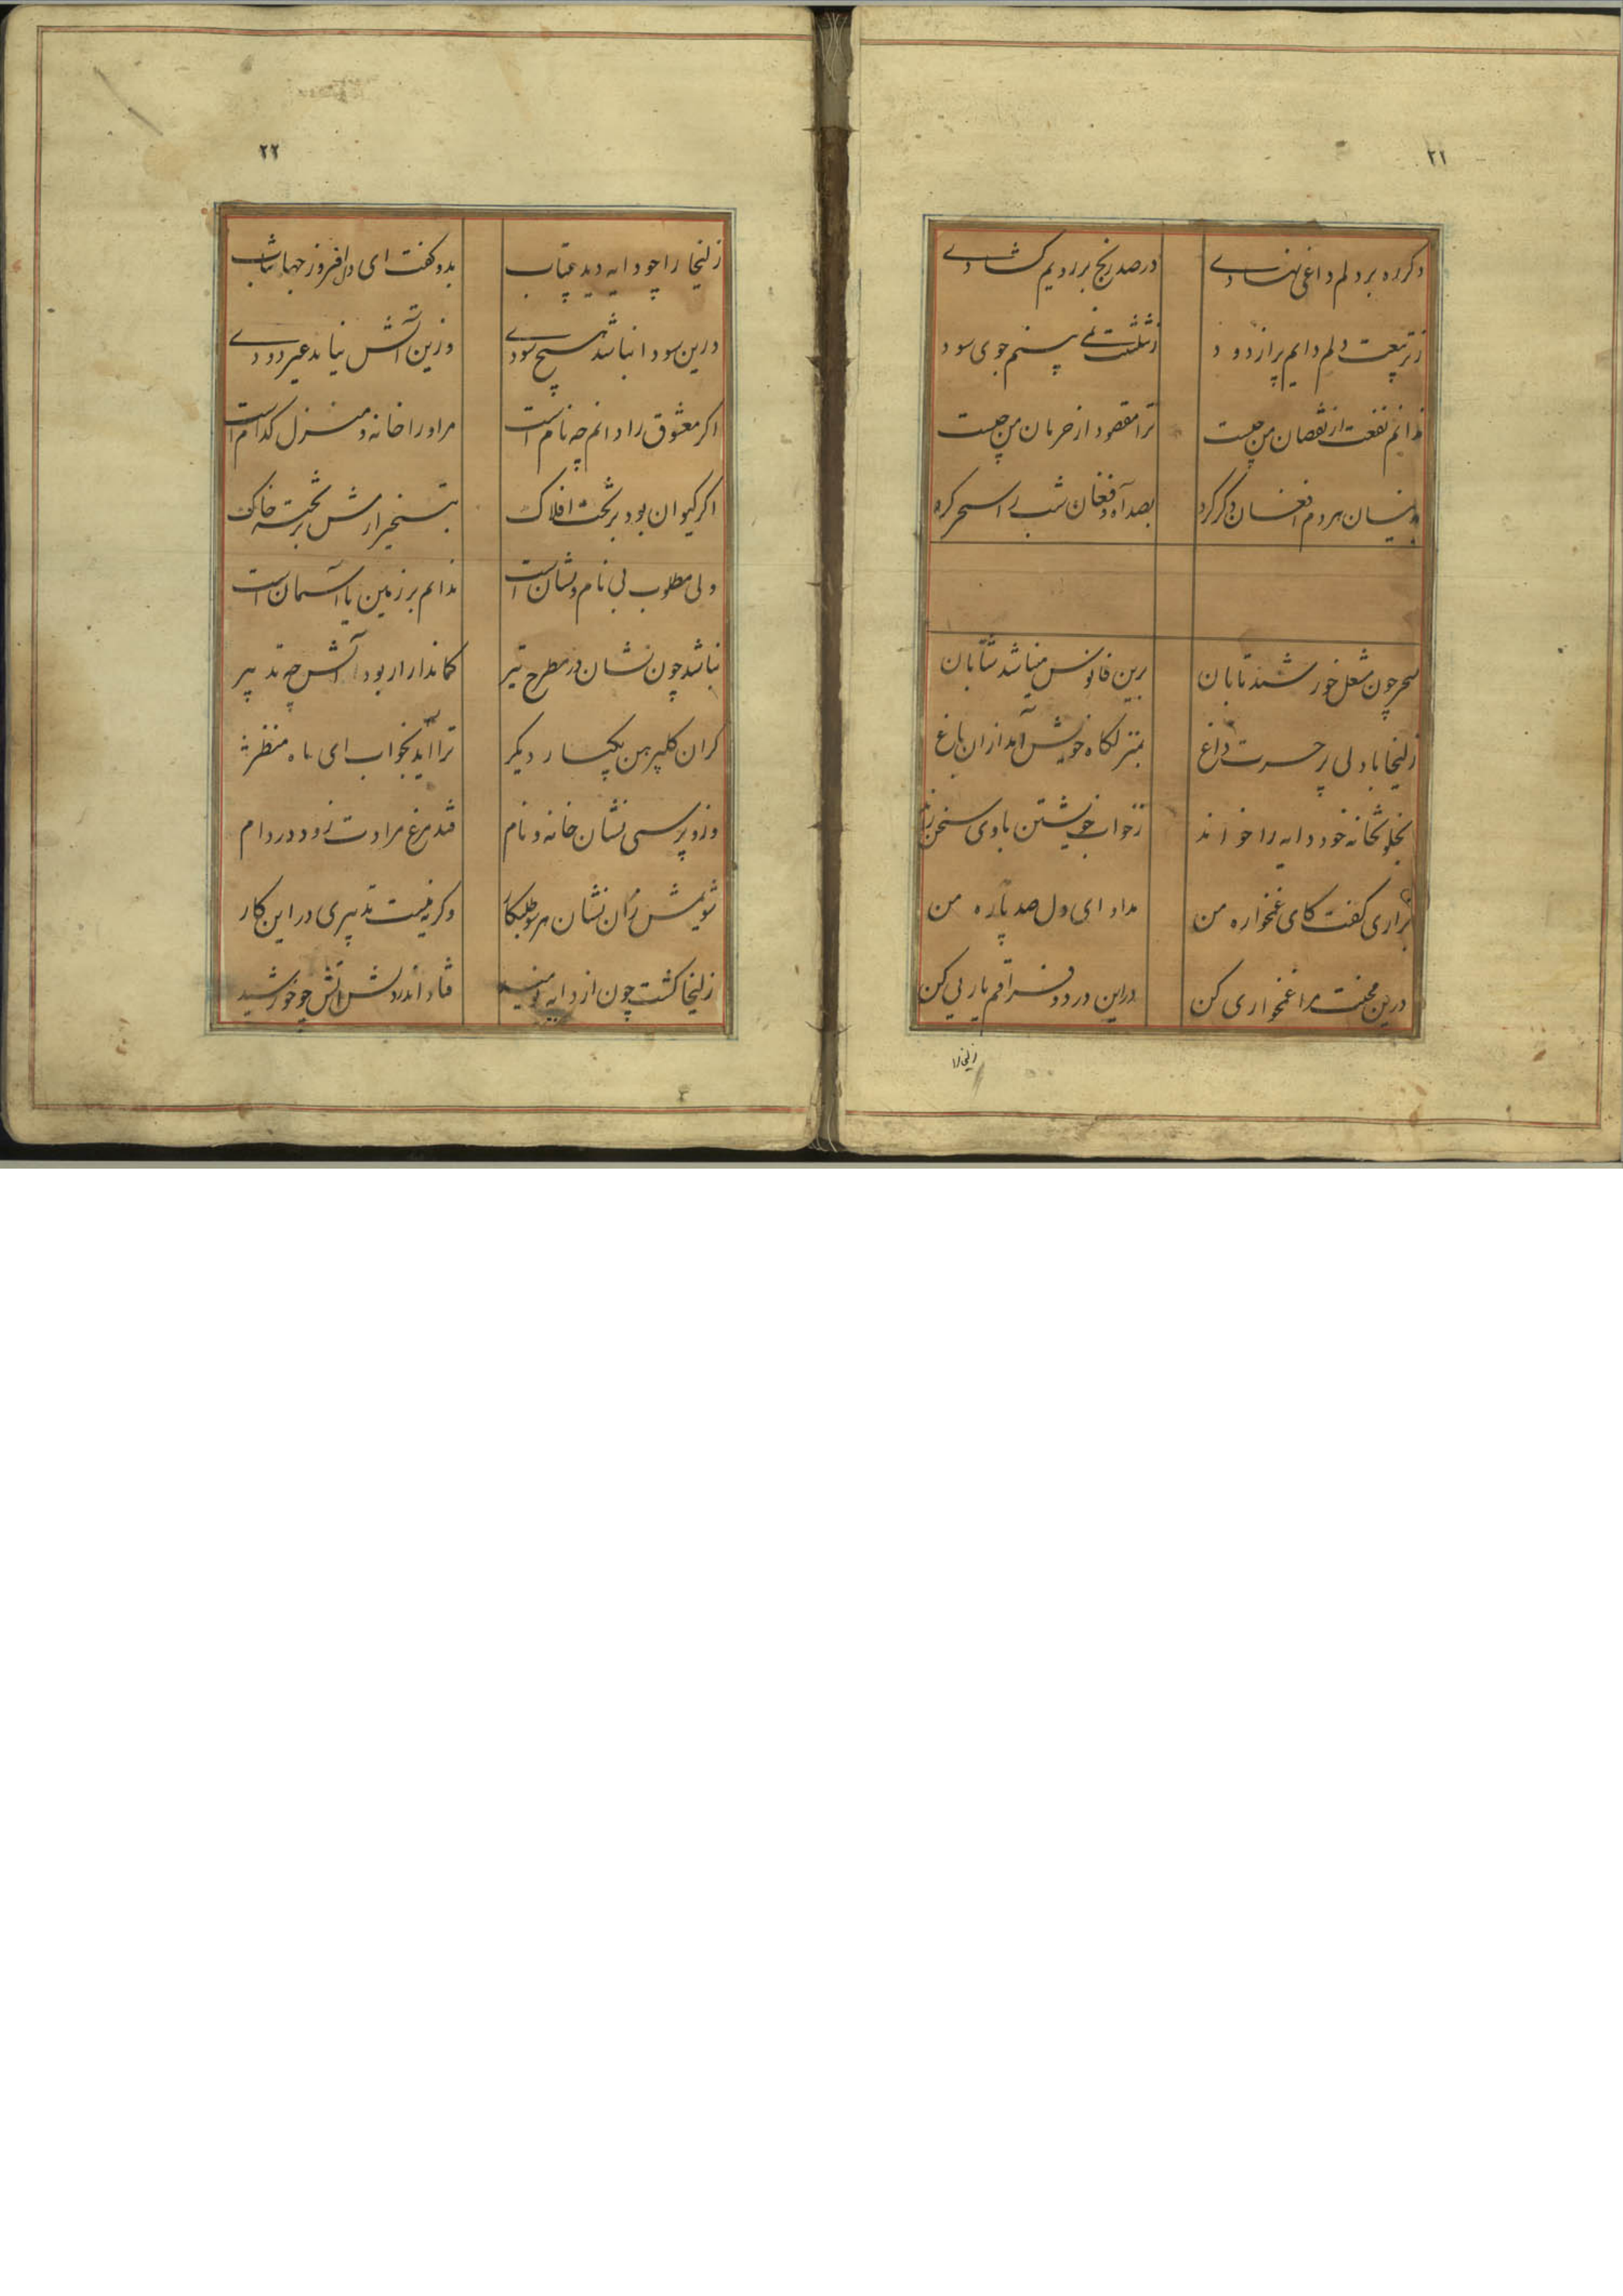 ۲۱
دگر ره بر دلم داغی نهادی
در صد رنج بر رویم کشادی
ز تربیعت دلم دایم پر از دود
ز تثلیثت نمی بینم جوی سود
ندانم نفعت از نقصان من چیست
ترا مقصود از حرمان من چیست
بدینسان هر دم افغان دگر کرد
بصد آه و فغان شب را سحر کرد
سحر چون مشعل خورشید تابان
برین فانوس مینا شد شتابان
زلیخا با دلی پر حسرت و داغ
بمنزلگاه خویش آمد ازان باغ
بخلوتخانه خود دایه را خواند
ز خواب خویشتن با وی سخن راند
بزاری گفت کای غمخواره من
مداوای دل صد پاره من
درین محنت مرا غمخواری کن
در این درد و فراقم یاریی کن
زلیخا را
۲۲
زلیخا را چو دایه دید بیتاب
بدو گفت ای دل افروز جهانتاب
درین سودا نباشد هیچ سودی
وزین آتش نیاید غیر دودی
اگر معشوق را دانم چه نام است
مر او را خانه و منزل کدام است
اگر کیوان بود بر تخت افلاک
بتسخیر ارمش بر تخته خاک
ولی مطلوب بی نام و نشان است
ندانم بر زمین یا آسمان است
نباشد چون نشان در مطرح تیر
کماندار ار بود آتش چه تدبیر
گر آن گلپیرهن یکبار دیگر
ترا آید بخواب ای ماه منظر
وزو پرسی نشان خانه و نام
فتد مرغ مرادت زود در دام
شویمش زان نشان هر سو طلبکار
وگرنه نیست تدبیری در این کار
زلیخا گشت چون از دایه نومید
فتاد اندر دلش آتش چو خورشید